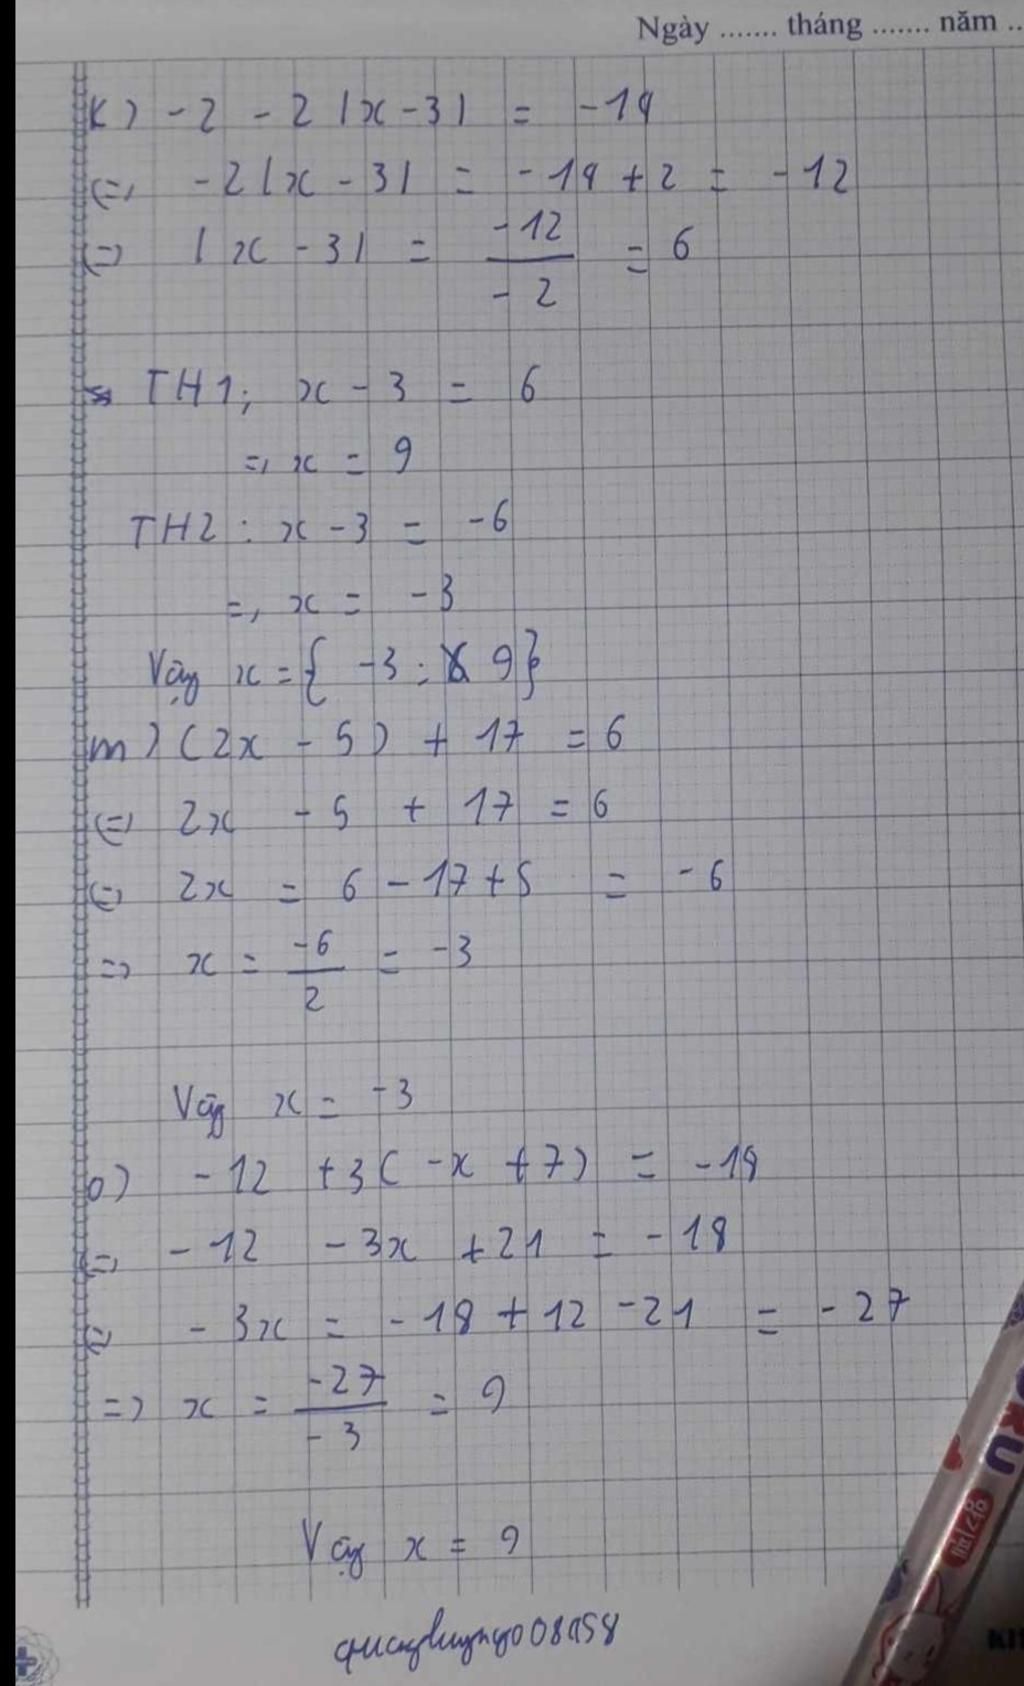 Ngày ....... tháng ....... năm ..
k) -2 - 2|x-3| = -14
<=> -2|x-3| = -14 + 2 = -12
<=> |x-3| = \frac{-12}{-2} = 6
TH1: x - 3 = 6
=> x = 9
TH2: x - 3 = -6
=> x = -3
Vậy x = { -3 ; 9}
m) (2x - 5) + 17 = 6
<=> 2x - 5 + 17 = 6
<=> 2x = 6 - 17 + 5 = -6
=> x = \frac{-6}{2} = -3
Vậy x = -3
o) -12 + 3(-x + 7) = -18
<=> -12 - 3x + 21 = -18
<=> -3x = -18 + 12 - 21 = -27
=> x = \frac{-27}{-3} = 9
Vậy x = 9
ORU
KI